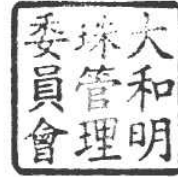 大和明
珠管理
委員會